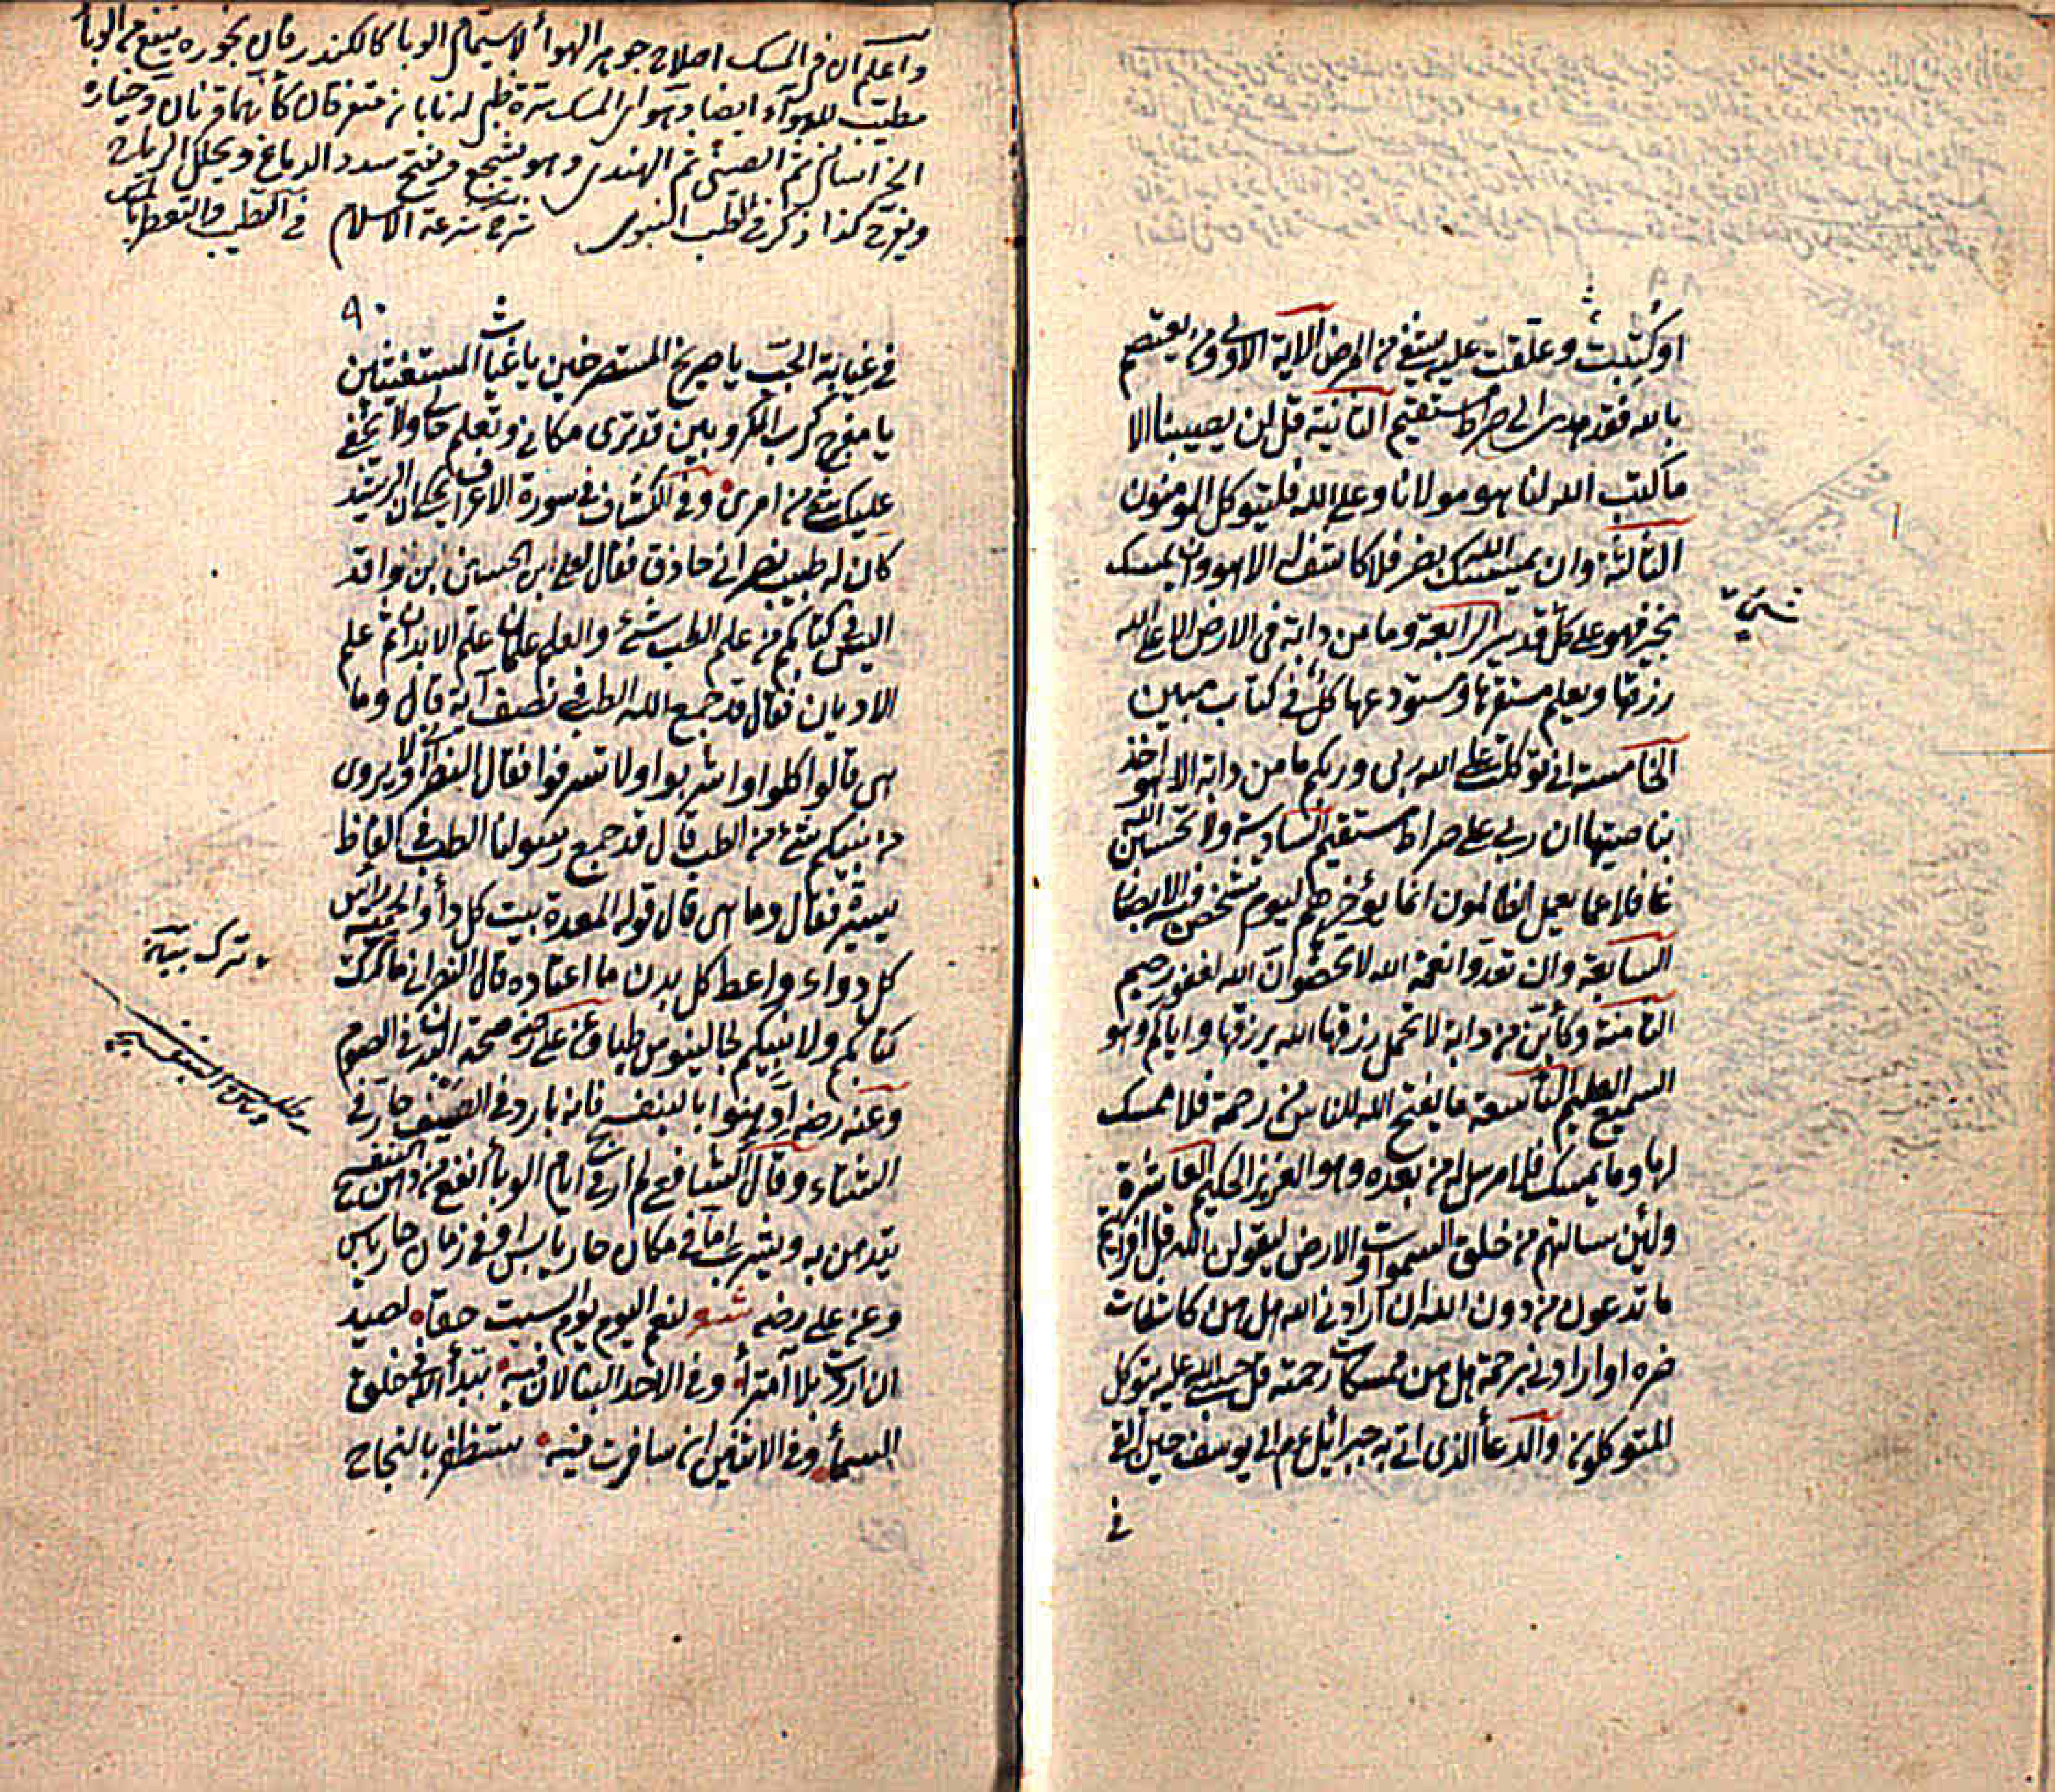 او كُتبت وعلقت عليه يشفى من المرض الآية الاولى ومن يعتصم
بالله فقد هدى الى صراط مستقيم الثانية قل لن يصيبنا الا
ما كتب الله لنا هو مولانا وعلى الله فليتوكل المؤمنون
الثالثة وان يمسسك الله بضر فلا كاشف له الا هو وان يمسك
بخير فهو على كل قدير الرابعة وما من دابة فى الارض الا على الله
رزقها ويعلم مستقرها ومستودعها كل فى كتاب مبين
الخامسة انى توكلت على الله ربى وربكم ما من دابة الا هو اخذ
بناصيتها ان ربى على صراط مستقيم السادسة ولا تحسبن الله
غافلا عما يعمل الظالمون انما يؤخرهم ليوم تشخص فيه الابصار
السابعة وان تعدوا نعمة الله لا تحصوها ان الله لغفور رحيم
الثامنة وكأين من دابة لا تحمل رزقها الله يرزقها واياكم وهو
السميع العليم التاسعة ما يفتح الله للناس من رحمة فلا ممسك
لها وما يمسك فلا مرسل له من بعده وهو العزيز الحكيم العاشرة
ولئن سالتهم من خلق السموات والارض ليقولن الله قل افرايتم
ما تدعون من دون الله ان ارادنى الله هل هن كاشفات
ضره او ارادنى برحمة هل هن ممسكات رحمته قل حسبى الله عليه يتوكل
المتوكلون والدعأ الذى اتى به جبرائيل عم الى يوسف حين القى
فى
واعلم ان فى المسك اصلاح جوهر الهوأ لا سيما فى الوبا كالكندر فان بخوره ينفع من الوبأ
مطيب للهوآء ايضا
ثم الصينى ثم الهندى وهو يشجع ويفتح سدد الدماغ ويحلل الرياح
ويفرح كذا ذكر فى الطب النبوى شرح شرعة الاسلام فى التطيب والتعطر
٩٠
فى غيابة الجب يا صريخ المستصرخين يا غياث المستغيثين
يا مفرج كرب المكروبين قد ترى مكانى وتعلم حالى ولا يخفى
عليك شئ من امرى وفى الكشاف فى سورة الاعراف يحكى ان الرشيد
كان له طبيب نصرانى حاذق فقال لعلى ابن الحسين بن واقد
اليس فى كتابكم من علم الطب شئ والعلم علمان علم الابدان ثم علم
الاديان فقال قد جمع الله الطب فى نصف آية قال وما
هى قال كلوا واشربوا ولا تسرفوا فقال النصرانى ولا يروى
من نبيكم شئ من الطب قال قد جمع رسولنا الطب فى الفاظ
يسيرة فقال وما هى قال قوله المعدة بيت كل دأ والحمية رأس
كل دواء واعط كل بدن ما اعتاده قال النصرانى ما ترك
كتابكم ولا نبيكم لجالينوس طبا وعن على رضه صحة البدن فى الصوم
وعنه رضه ادهنوا بالبنفسج فانه بارد فى الصيف حار فى
الشتاء وقال الشافعى لم ار فى ايام الوبأ انفع من دهن البنفسج
يتدهن به ويشرب اما فى مكان حار يابس او فى زمان حار يابس
وعن على رضه شعر لنعم اليوم يوم السبت حقا لصيد
ان اردت بلا امترأ وفى الاحد البنا لان فيه تبدأ الله فى خلق
السمأ وفى الاثنين ان سافرت فيه ستظفر بالنجاح